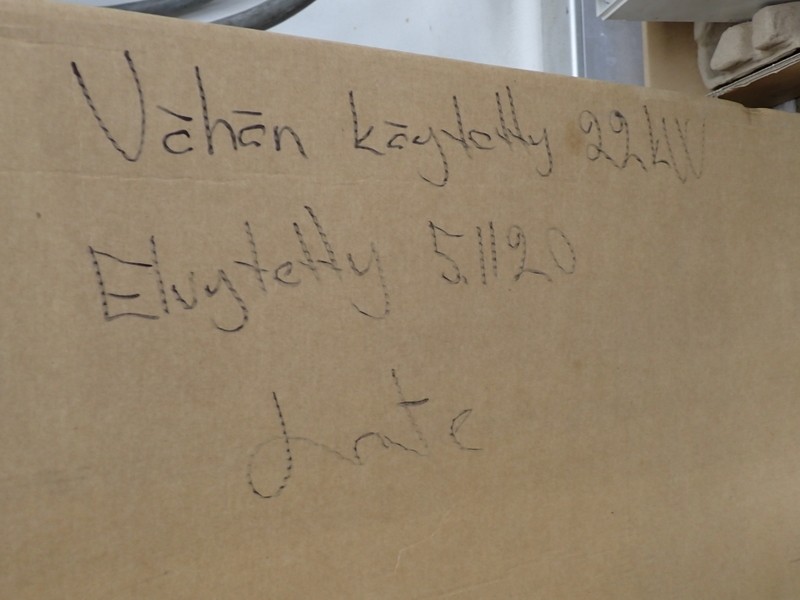 Vähän käytetty 22kW
Elvytetty 5.11.20